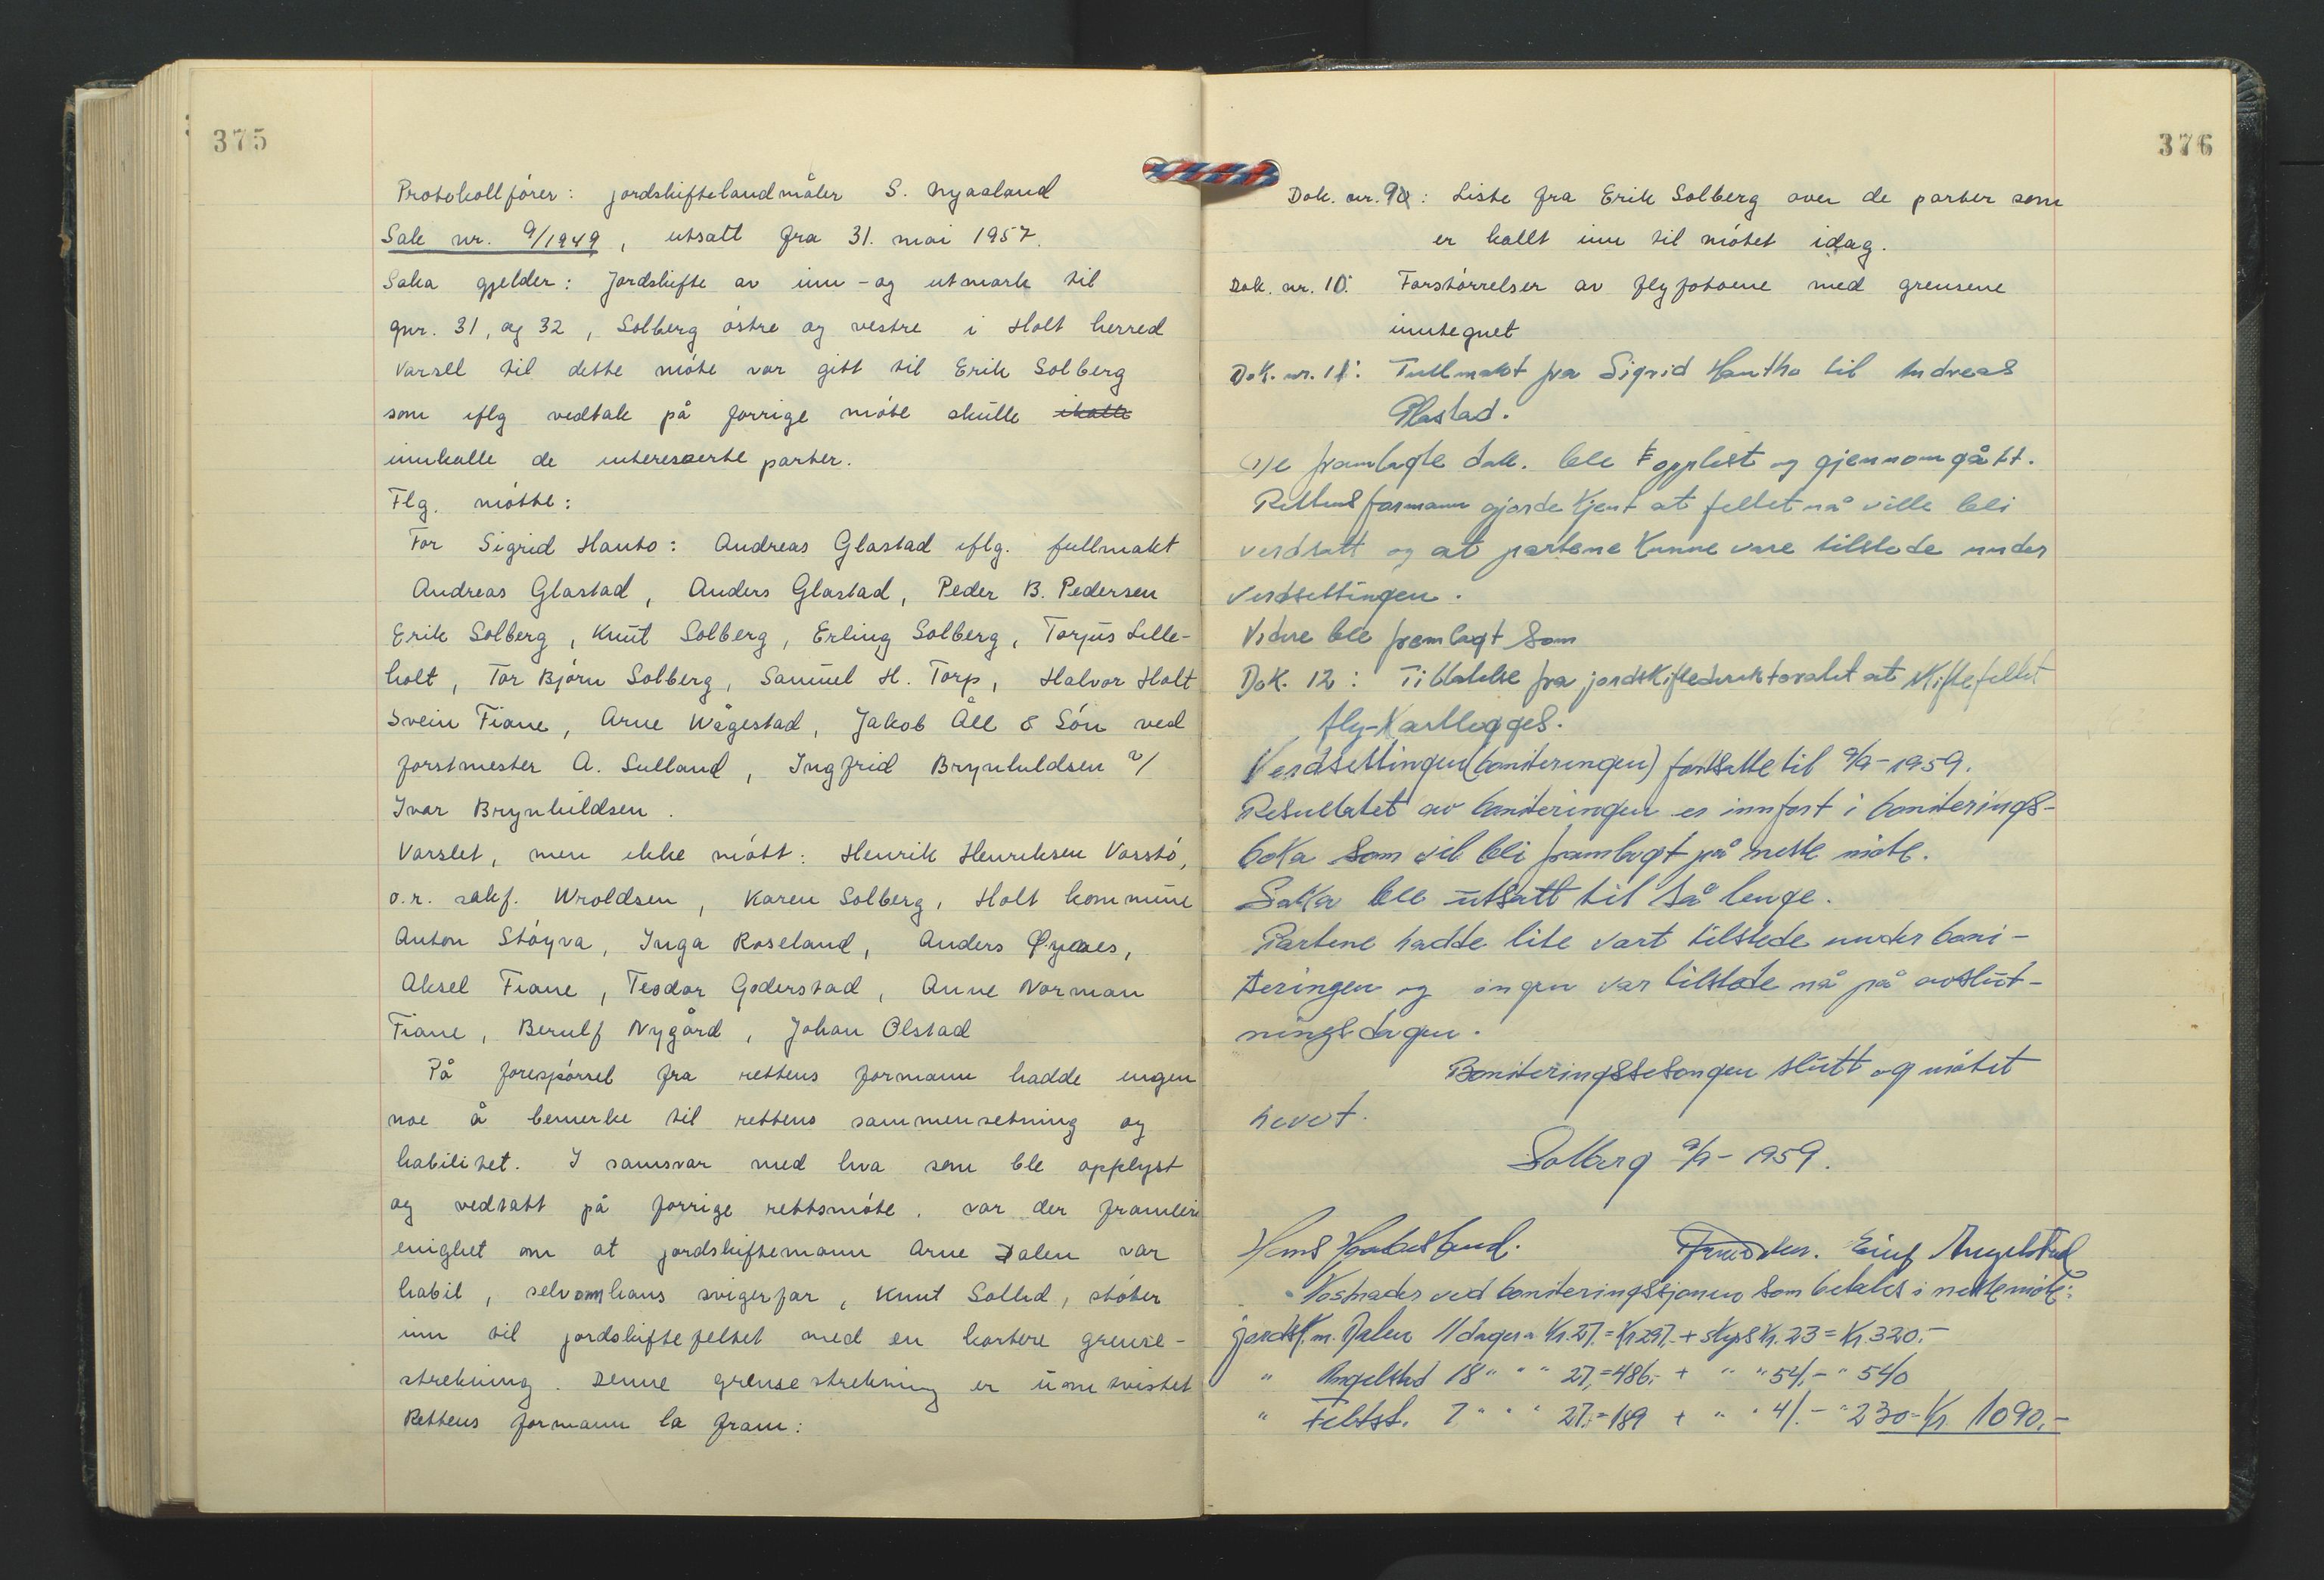 375
Protokollfører: jordskiftelandmåler S. Nyaaland
Sak nr. 9/1949, utsatt fra 31. mai 1957.
Saka gjelder: Jordskifte av inn- og utmark til
gnr. 31, og 32, Solberg østre og vestre i Holt herred
Varsel til dette møte var gitt til Erik Solberg
som iflg vedtak på forrige møte skulle
innkalle de interesserte parter.
Flg. møtte:
For Sigrid Hanto: Andreas Glastad iflg. fullmakt
Andreas Glastad, Anders Glastad, Peder B. Pedersen
Erik Solberg, Knut Solberg, Erling Solberg, Torjus Lille-
holt, Tor Bjørn Solberg, Samuel H. Torp, Halvor Holt
Svein Fiane, Arne Wågestad, Jakob Åll & Søn ved
forstmester A. Sulland, Ingfrid Brynhildsen v/
Ivar Brynhildsen.
Varslet, men ikke møtt: Henrik Henriksen Vasstø,
o.r. sakf. Wroldsen, Karen Solberg, Holt kommune
Anton Støyva, Inga Roseland, Anders Øynes,
Aksel Fiane, Teodor Goderstad, Anne Norman
Fiane, Berulf Nygård, Johan Olstad
På forespørsel fra rettens formann hadde ingen
noe å bemerke til rettens sammensetning og
habilitet. I samsvar med hva som ble opplyst
og vedtatt på forrige rettsmøte, var der framleis
enighet om at jordskiftemann Arne Dalen var
habil, selvom hans svigerfar, Knut Sollid, støter
inn til jordskiftefeltet med en kortere grense-
strekning. Denne grensestrekning er uomtvistet
Rettens formann la fram:
376
Dok. nr. 9: Liste fra Erik Solberg over de parter som
er kallt inn til møtet idag.
Dok. nr. 10: Forstørrelser av flyfotoene med grensene
inntegnet
Dok. nr. 11: Fullmakt fra Sigrid Hantho til Andreas
Glastad.
De framlagte dok. ble opplest og gjennomgått.
Rettens formann gjorde kjent at feltet nå ville bli
verdsatt og at partene kunne være tilstede under
verdsettingen.
Videre ble fremlagt som
Dok. 12: Tillatelse fra jordskiftedirektoratet at skiftefeltet
fly-kartlegges.
Verdsettingen (boniteringen) fortsatte til 9/9-1959.
Resultatet av boniteringen er innført i boniterings-
boka som vil bli framlagt på neste møte.
Saka ble utsatt til så lenge.
Partene hadde lite vært tilstede under boni-
teringen og ingen var tilstede nå på avslut-
ningsdagen.
Boniteringssesongen slutt og møtet
hevet.
Solberg 9/9-1959.
Einf Angelstad
Kostnader ved boniteringssjonen som betales i neste møte:
jordsk.m. Dalen 11 dager a Kr. 27.= Kr 297.- + skyss Kr. 23 = Kr. 320.-
" Angelstad 18 " " " 27,=486,- + " " 54,- " 540
" Feltst. 7 " " " 27,=189 + " " 41.- " 230 = Kr. 1090,-